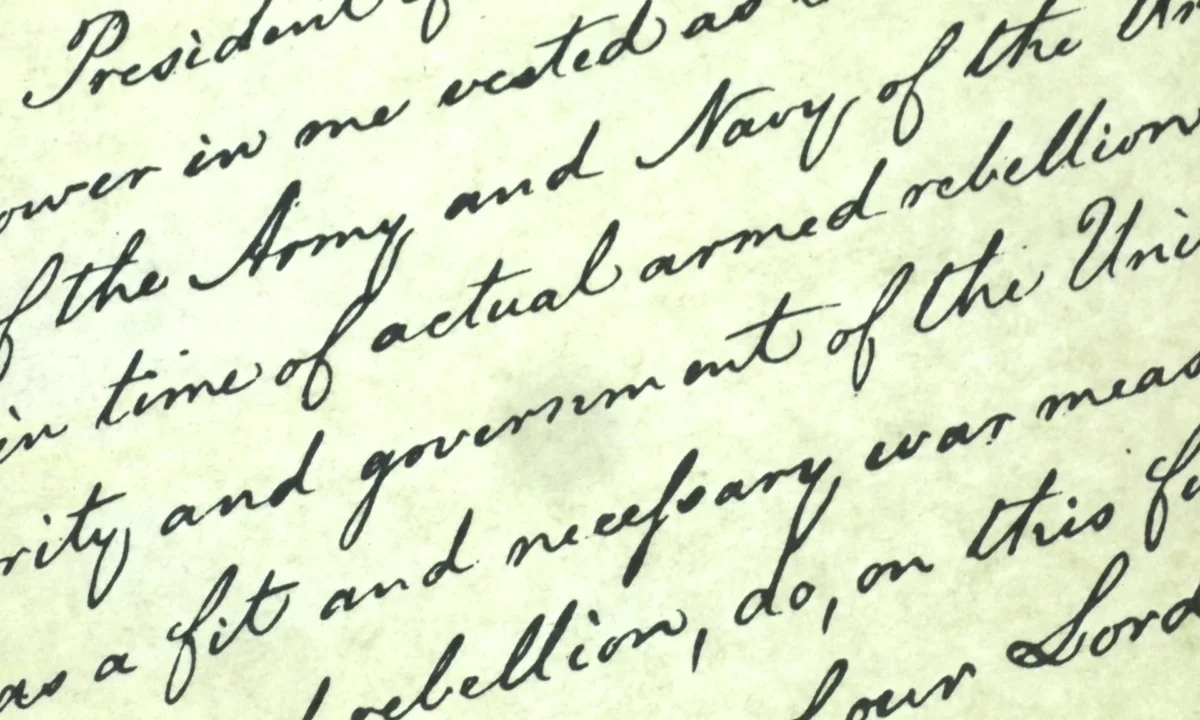 President
ower in me vested as
f the Army and Navy of the Un
in time of actual armed rebellion
rity and government of the Uni
as a fit and necessary war meas
rebellion, do, on this fi
our Lord